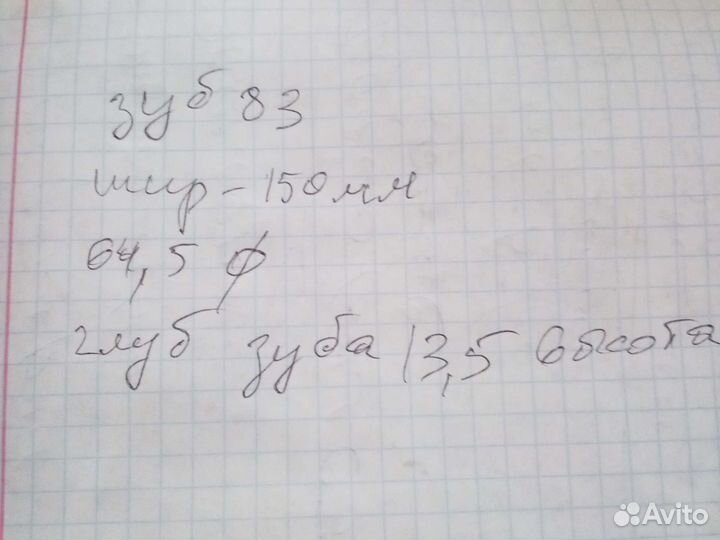 зуб 83
шир - 150 мм
64,5 ϕ
глуб зуба 13,5 высота
Avito